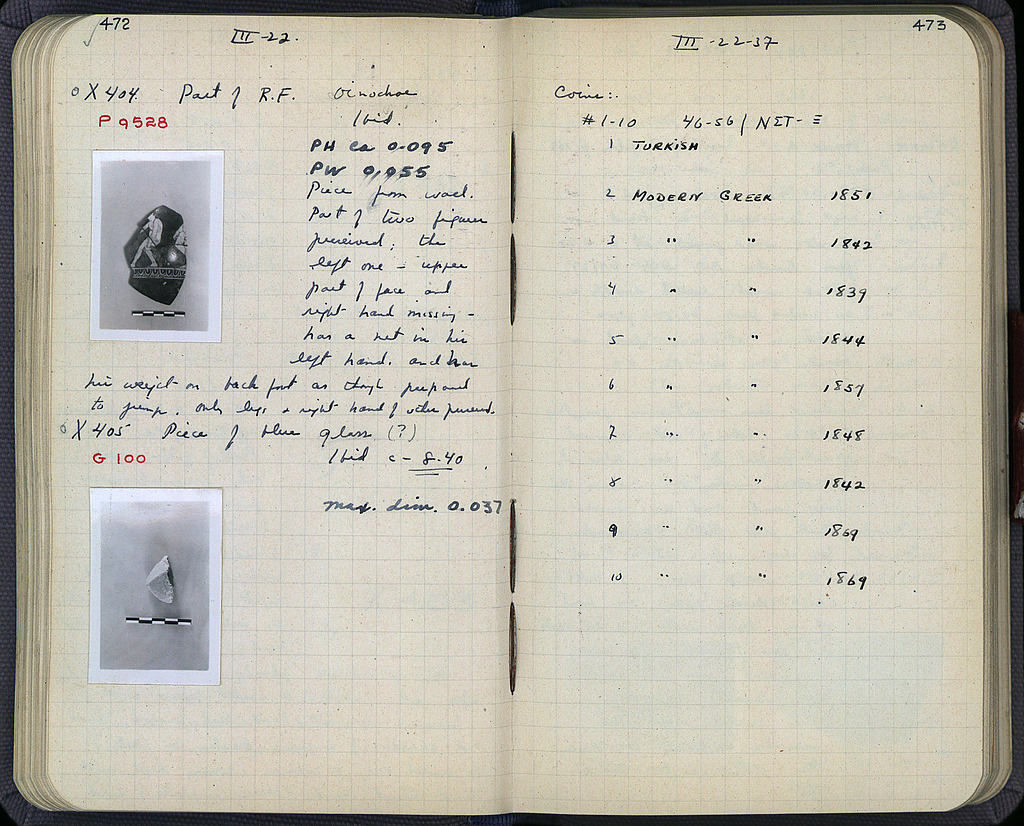 472
III-22.
X 404. Part of R.F. Oinochoe
P 9528
Ibid.
PH ca 0.095
PW 0,055
Piece from wall.
Part of two figures
preserved; the
left one - upper
part of face and
right hand missing -
has a net in his
left hand. and has
his weight on back foot as though prepared
to jump. only legs + right hand of other preserved.
X 405 Piece of blue glass (?)
G 100
Ibid c - 8.40
max. dim. 0.037
473
III -22-37
Coins:.
#1-10 46-56 / ΝΣΤ- Ξ
1 TURKISH
2 MODERN GREEK 1851
3 " " 1842
4 " " 1839
5 " " 1844
6 " " 1857
7 " " 1848
8 " " 1842
9 " " 1869
10 " " 1869